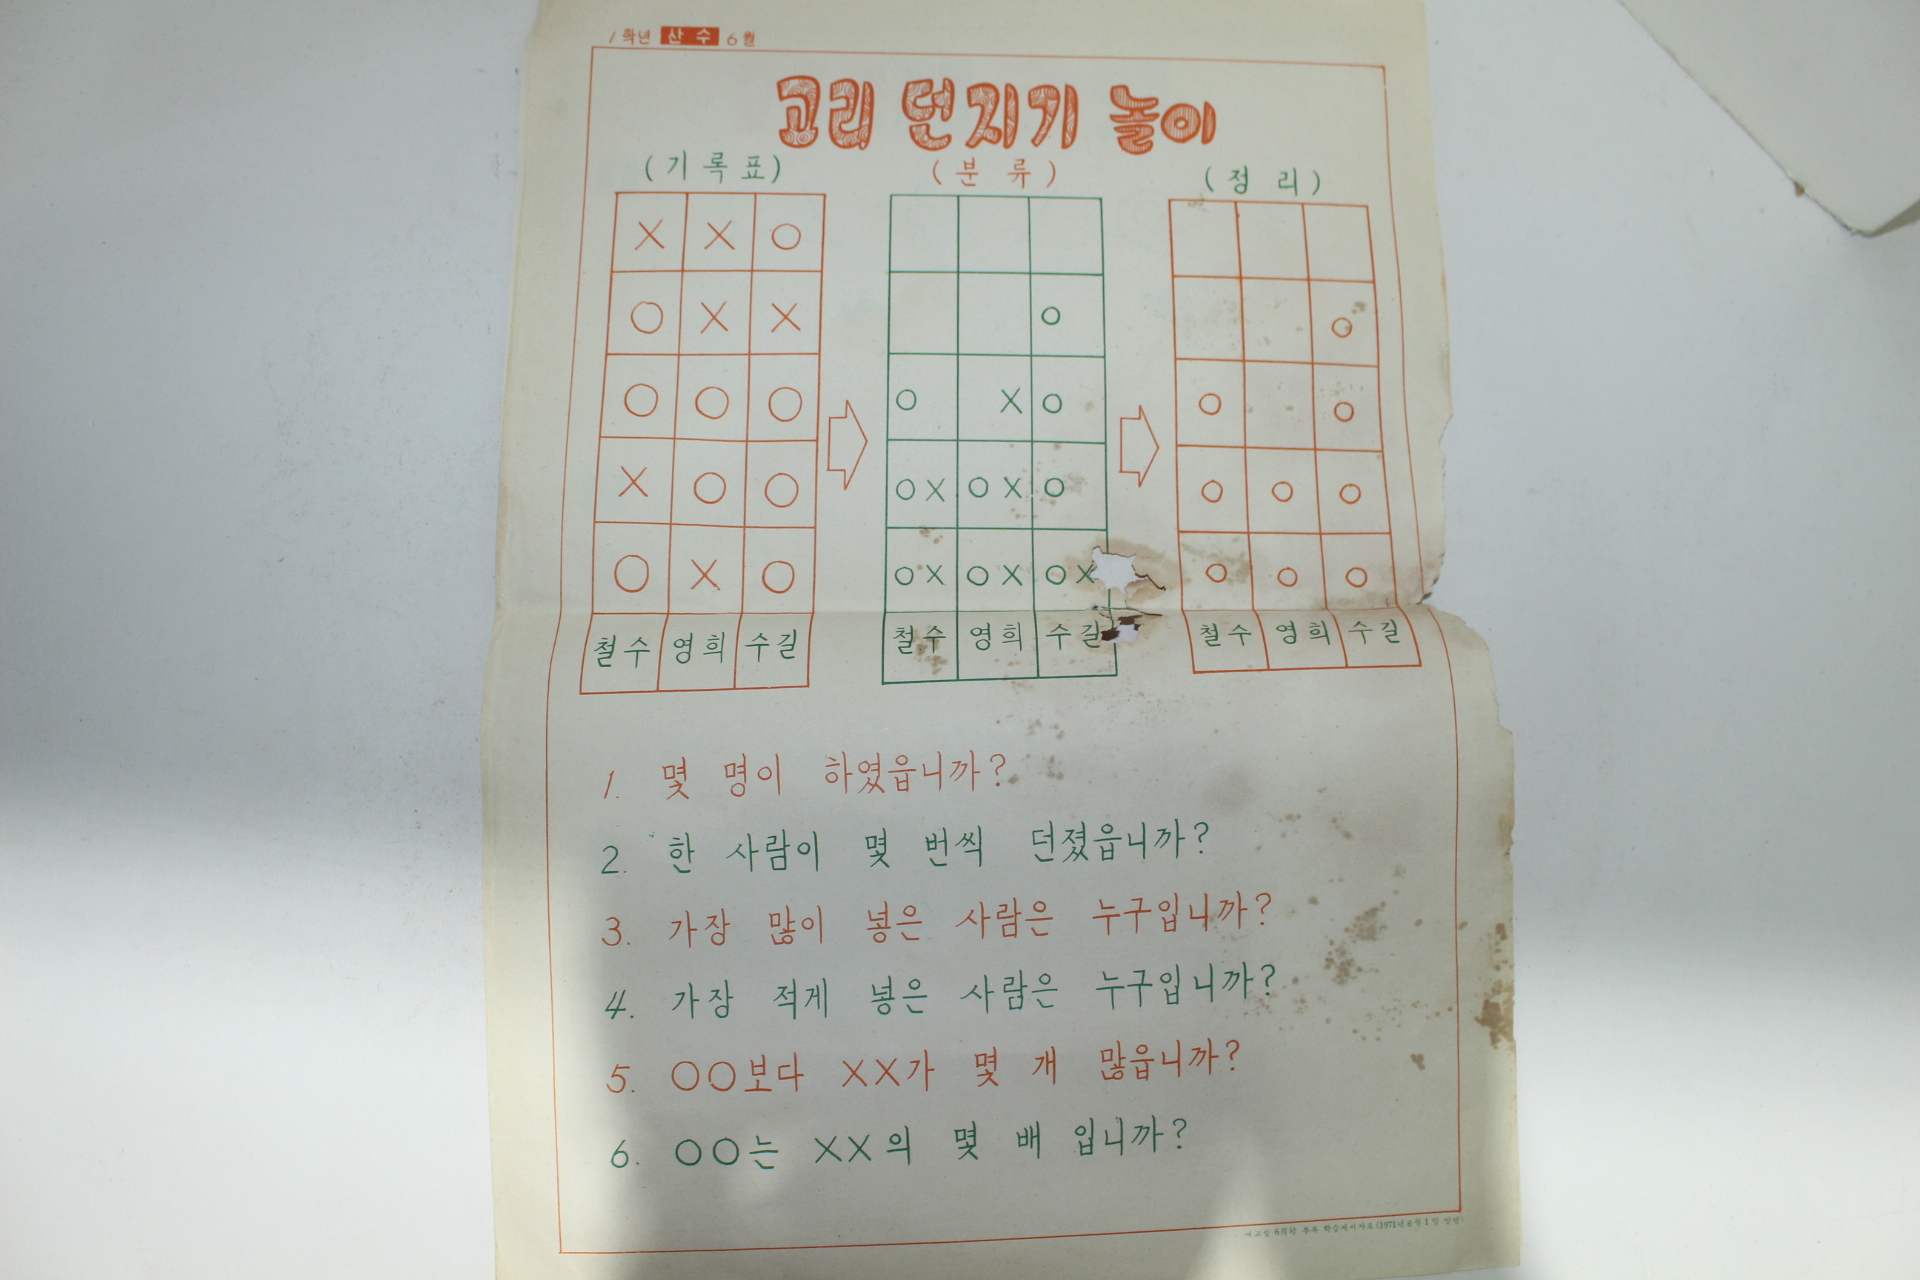 1학년 산수 6월
고리 던지기 놀이
(기록표) (분류) (정리)
× × ○
○ × ×
○ ○ ○ ○ × ○ ○ ○
× ○ ○ ○× ○× ○ ○ ○ ○
○ × ○ ○× ○× ○× ○ ○ ○
철수 영희 수길 철수 영희 수길 철수 영희 수길
1. 몇 명이 하였읍니까?
2. 한 사람이 몇 번씩 던졌읍니까?
3. 가장 많이 넣은 사람은 누구입니까?
4. 가장 적게 넣은 사람은 누구입니까?
5. ○○보다 ××가 몇 개 많읍니까?
6. ○○는 ××의 몇 배 입니까?
6월호 부록 (1971년 6월 1일 발행)